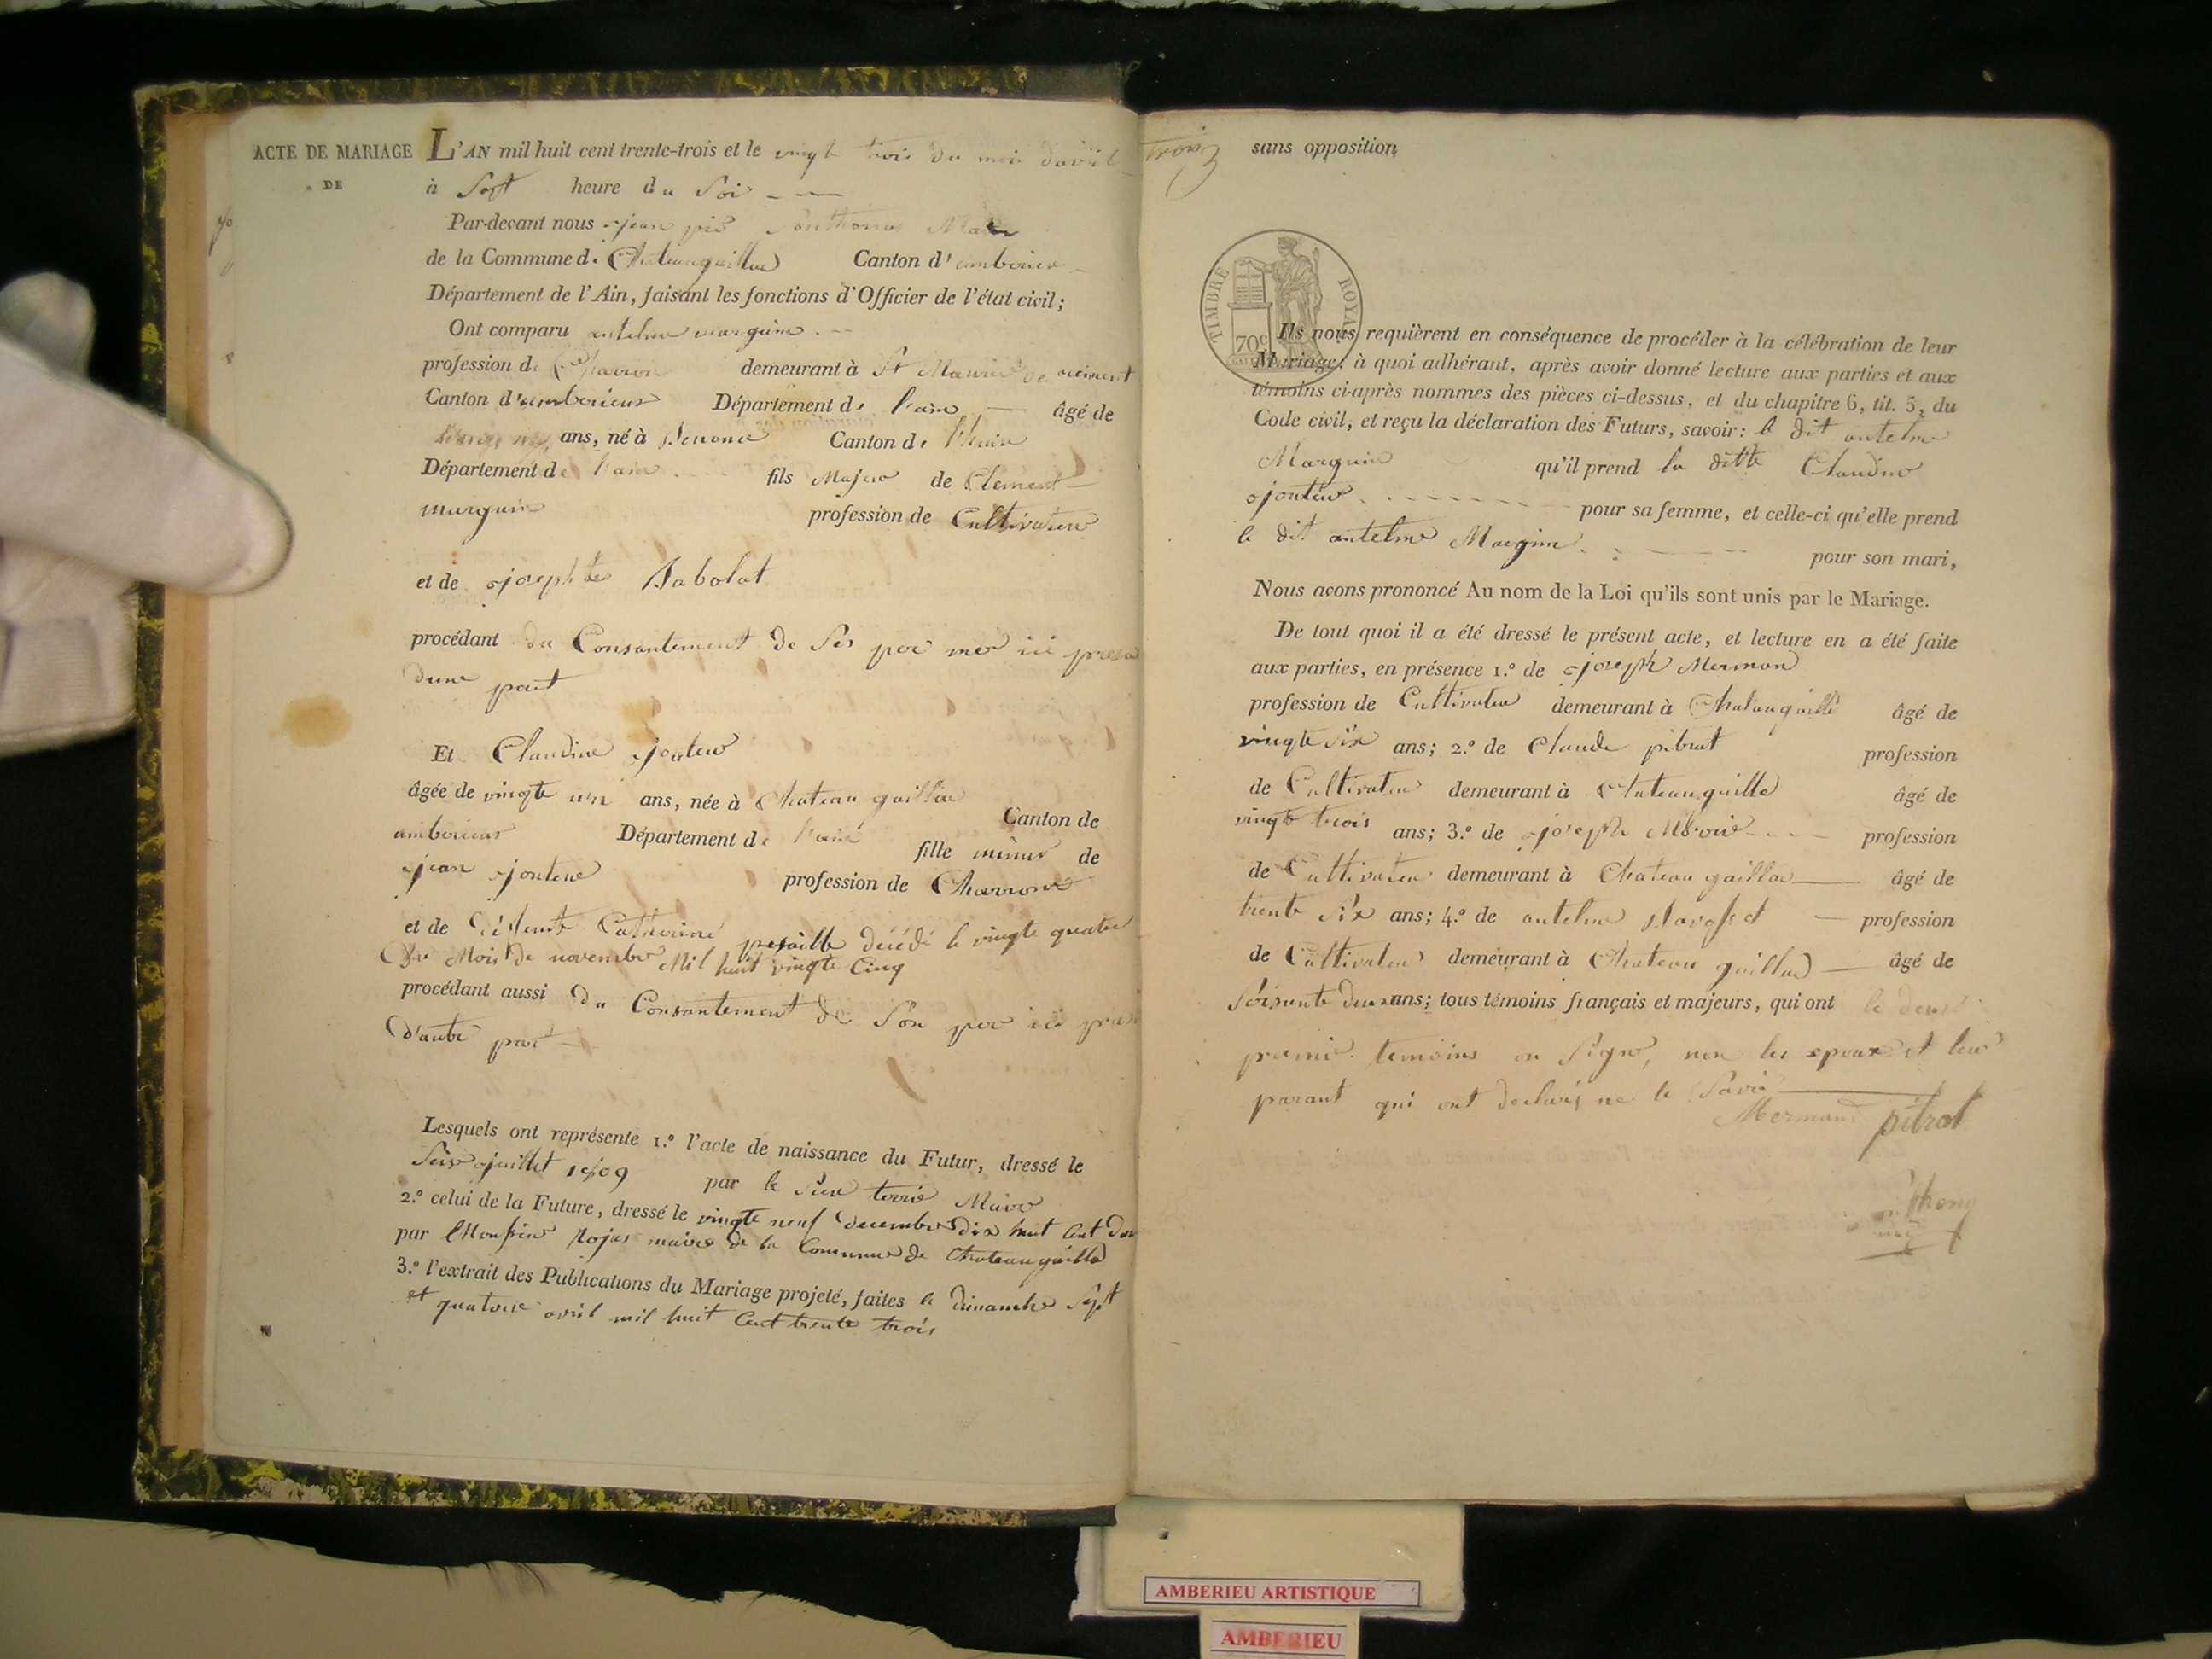 ACTE DE MARIAGE
DE
L'AN mil huit cent trente-trois et le vingt trois du mois davril
à Sept heure du Soir
Par-devant nous jean Maire
de la Commune de Chateaugaillard Canton d'amberieu
Département de l'Ain, faisant les fonctions d'Officier de l'état civil;
Ont comparu antelme marguin
profession de Charron demeurant à St Maurice de
Canton d'amberieux Département de l'ain âgé de
ans, né à Canton de
Département de l'ain fils Majeur de Clement
marguin profession de Cultivateur
et de josephte Rabolat
procédant du Consantement de Ses per mer ici
dune part
Et Claudine
âgée de vingte un ans, née à Chateau gaillar Canton de
amberieux Département de l'ain fille mineur de
jean profession de Charron
et de Catherine décédé le vingte quatre
du Mois de novembre Mil huit vingte Cinq
procédant aussi du Consantement de Son per ici
d'autre part
Lesquels ont représenté 1.º l'acte de naissance du Futur, dressé le
juillet 1809 par le Maire
2.º celui de la Future, dressé le vingte neuf decembre dix huit Cent
par maire de la Commune de Chateaugaillard
3.º l'extrait des Publications du Mariage projeté, faites le dimanche Sept
et quatorze avril mil huit Cent trente trois
trois sans opposition
TIMBRE ROYAL
70c
Ils nous requièrent en conséquence de procéder à la célébration de leur
Mariage; à quoi adhérant, après avoir donné lecture aux parties et aux
témoins ci-après nommes des pièces ci-dessus, et du chapitre 6, tit. 5, du
Code civil, et reçu la déclaration des Futurs, savoir: le dit antelme
Marguin qu'il prend la ditte Claudine
pour sa femme, et celle-ci qu'elle prend
le dit antelme Marguin pour son mari,
Nous avons prononcé Au nom de la Loi qu'ils sont unis par le Mariage.
De tout quoi il a été dressé le présent acte, et lecture en a été faite
aux parties, en présence 1.º de joseph Mermon
profession de Cultivateur demeurant à âgé de
vingte six ans; 2.º de Claude pitrat profession
de Cultivateur demeurant à Chateaugaillard âgé de
vingt trois ans; 3.º de joseph profession
de Cultivateur demeurant à Chateau gaillar âgé de
trente Six ans; 4.º de antelme profession
de Cultivateur demeurant à Chateau gaillard âgé de
Soisante deux ans; tous témoins français et majeurs, qui ont le deux
premie temoins on Signé, non les epoux et leur
parant qui ont declarés ne le Savoir
Mermand pitrat
AMBERIEU ARTISTIQUE
AMBERIEU